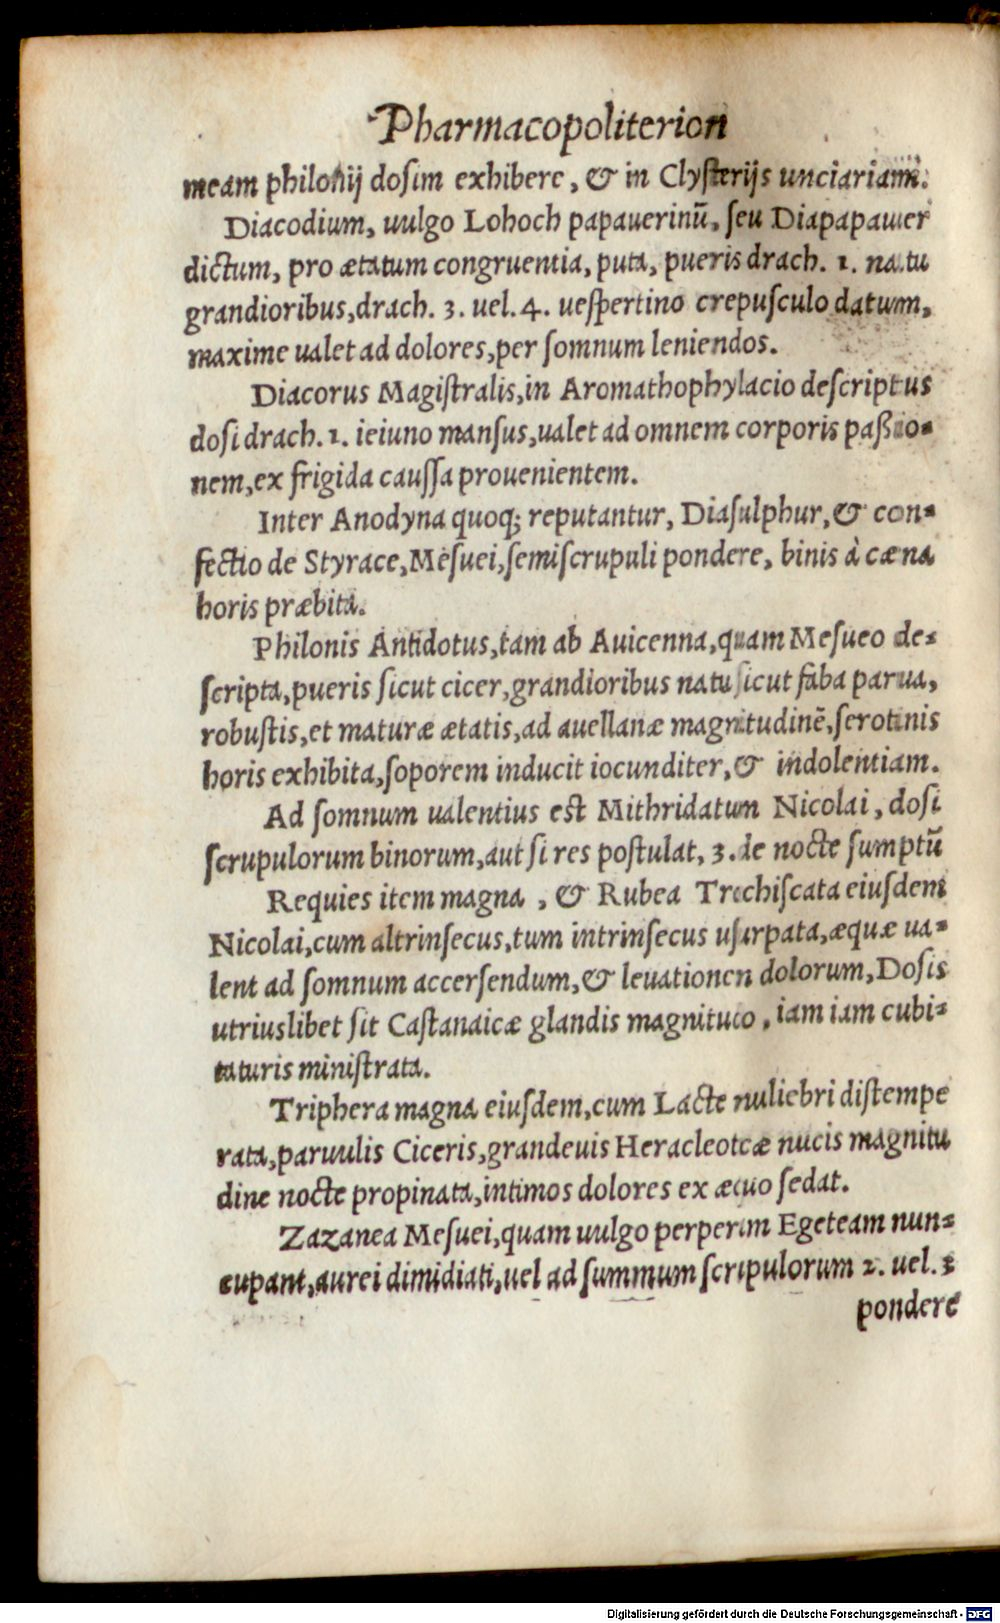 Pharmacopoliterion
meam philonij dosim exhibere, & in Clysterijs unciariam.
Diacodium, uulgo Lohoch papauerinū, seu Diapapauer
dictum, pro ætatum congruentia, puta, pueris drach. 1. natu
grandioribus, drach. 3. uel. 4. uespertino crepusculo datum,
maxime ualet ad dolores, per somnum leniendos.
Diacorus Magistralis, in Aromathophylacio descriptus
dosi drach. 1. ieiuno mansus, ualet ad omnem corporis paßio-
nem, ex frigida caussa prouenientem.
Inter Anodyna quoq; reputantur, Diasulphur, & con-
fectio de Styrace, Mesuei, semiscrupuli pondere, binis à cæna
horis præbita.
Philonis Antidotus, tam ab Auicenna, quam Mesueo de-
scripta, pueris sicut cicer, grandioribus natu sicut faba parua,
robustis, et maturæ ætatis, ad auellanæ magnitudinē, serotinis
horis exhibita, soporem inducit iocunditer, & indolentiam.
Ad somnum ualentius est Mithridatum Nicolai, dosi
scrupulorum binorum, aut si res postulat, 3. de nocte sumptū
Requies item magna, & Rubea Trochiscata eiusdem
Nicolai, cum altrinsecus, tum intrinsecus usurpata, æquæ ua-
lent ad somnum accersendum, & leuationem dolorum, Dosis
utriuslibet sit Castanaicæ glandis magnituco, iam iam cubi-
taturis ministrata.
Triphera magna eiusdem, cum Lacte muliebri distempe
rata, paruulis Ciceris, grandeuis Heracleotcæ nucis magnitu
dine nocte propinata, intimos dolores ex æquo sedat.
Zazanea Mesuei, quam uulgo perperam Egeteam nun-
cupant, aurei dimidiati, uel ad summum scripulorum 2. uel. 3
pondere
Digitalisierung gefördert durch die Deutsche Forschungsgemeinschaft - DFG